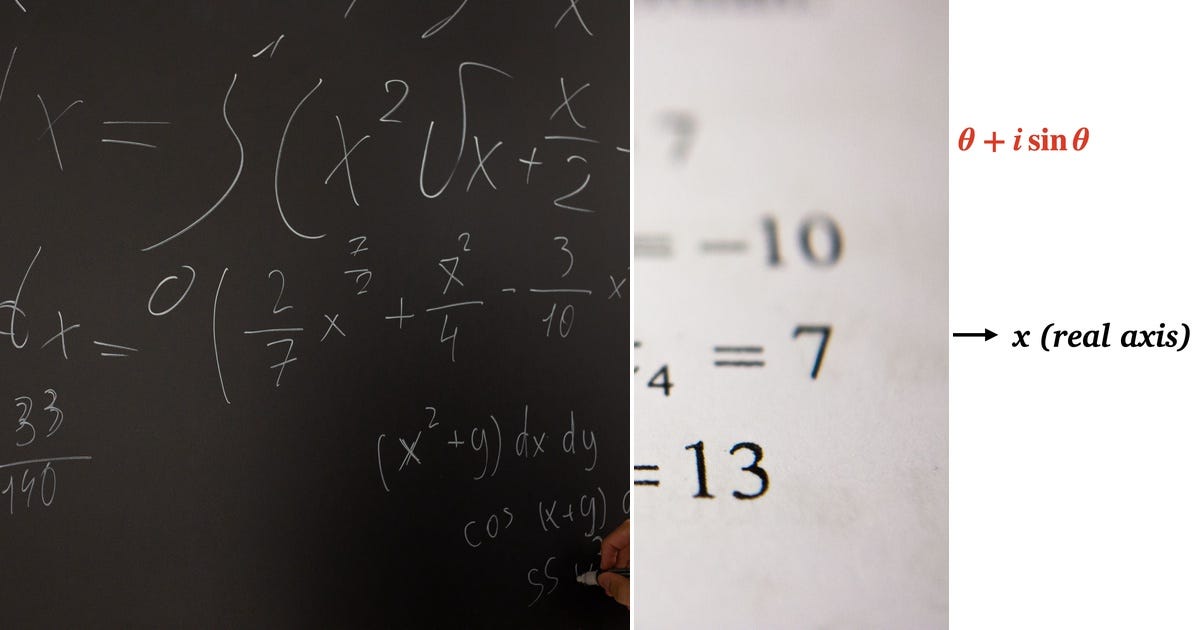 x = ∫ ( x² √x + x/2 -
dx = 0 ( 2/7 x^7/2 + x²/4 - 3/10 x
33/140
(x²+y) dx dy
cos (x+y)
SS
7
= -10
4 = 7
= 13
θ + i sin θ
→ x (real axis)